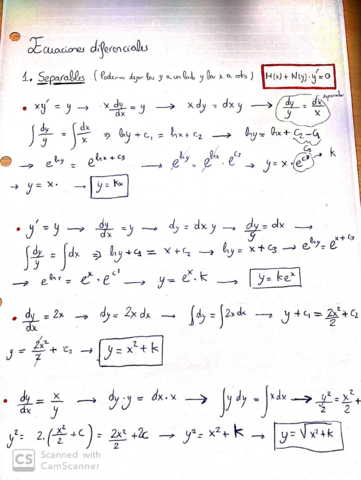 Ecuaciones diferenciales
1. Separables (Podemos dejar los y a un lado y los x a otro) M(x) + N(y)·y' = 0
• xy' = y → x dy/dx = y → x dy = dx y → dy/y = dx/x separables
∫ dy/y = ∫ dx/x ⇒ ln y + c₁ = ln x + c₂ → ln y = ln x + c₂ - c₁ c₃
→ e^(ln y) = e^(ln x + c₃) → e^(ln y) = e^(ln x) · e^(c₃) → y = x · e^(c₃) k
→ y = x · → y = kx
• y' = y → dy/dx = y → dy = dx y → dy/y = dx →
∫ dy/y = ∫ dx ⇒ ln y + c₁ = x + c₂ → ln y = x + c₃ → e^(ln y) = e^(x + c₃)
→ = e^x · e^(c₃) → y = e^x · k → y = ke^x
• dy/dx = 2x → dy = 2x dx → ∫ dy = ∫ 2x dx → y + c₁ = 2x²/2 + c₂
y = 2x²/2 + c₃ → y = x² + k
• dy/dx = x/y → dy · y = dx · x → ∫ y dy = ∫ x dx → y²/2 = x²/2 +
y² = 2 · (x²/2 + c) = 2x²/2 + 2c → y² = x² + k → y = √(x² + k)
CS Scanned with
CamScanner